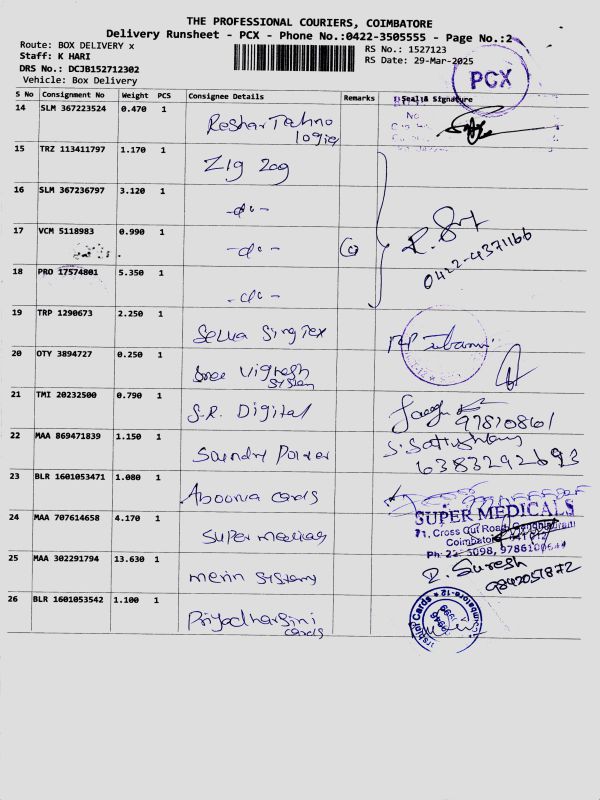 THE PROFESSIONAL COURIERS, COIMBATORE
Delivery Runsheet - PCX - Phone No.:0422-3505555 - Page No.:2
Route: BOX DELIVERY x
RS No.: 1527123
Staff: K HARI
RS Date: 29-Mar-2025
DRS No.: DCJB152712302
Vehicle: Box Delivery
PCX
S No Consignment No Weight PCS Consignee Details Remarks Seal & Signature
14 SLM 367223524 0.470 1
15 TRZ 113411797 1.170 1 Zig Zag
16 SLM 367236797 3.120 1 -do-
17 VCM 5118983 0.990 1 -do-
R.
0422-4371166
18 PRO 17574801 5.350 1 -do-
19 TRP 1290673 2.250 1 Selva Sing Tex
20 OTY 3894727 0.250 1 Sree Vignesh
System
21 TMI 20232500 0.790 1 S.R. Digital
22 MAA 869471839 1.150 1
6383292693
23 BLR 1601053471 1.080 1 cards
24 MAA 707614658 4.170 1 Super medicals
SUPER MEDICALS
71, Cross Cut Road,
Coimbatore
25 MAA 302291794 13.630 1 System
R. Suresh
9842051872
26 BLR 1601053542 1.100 1 Priyadharsini
cards